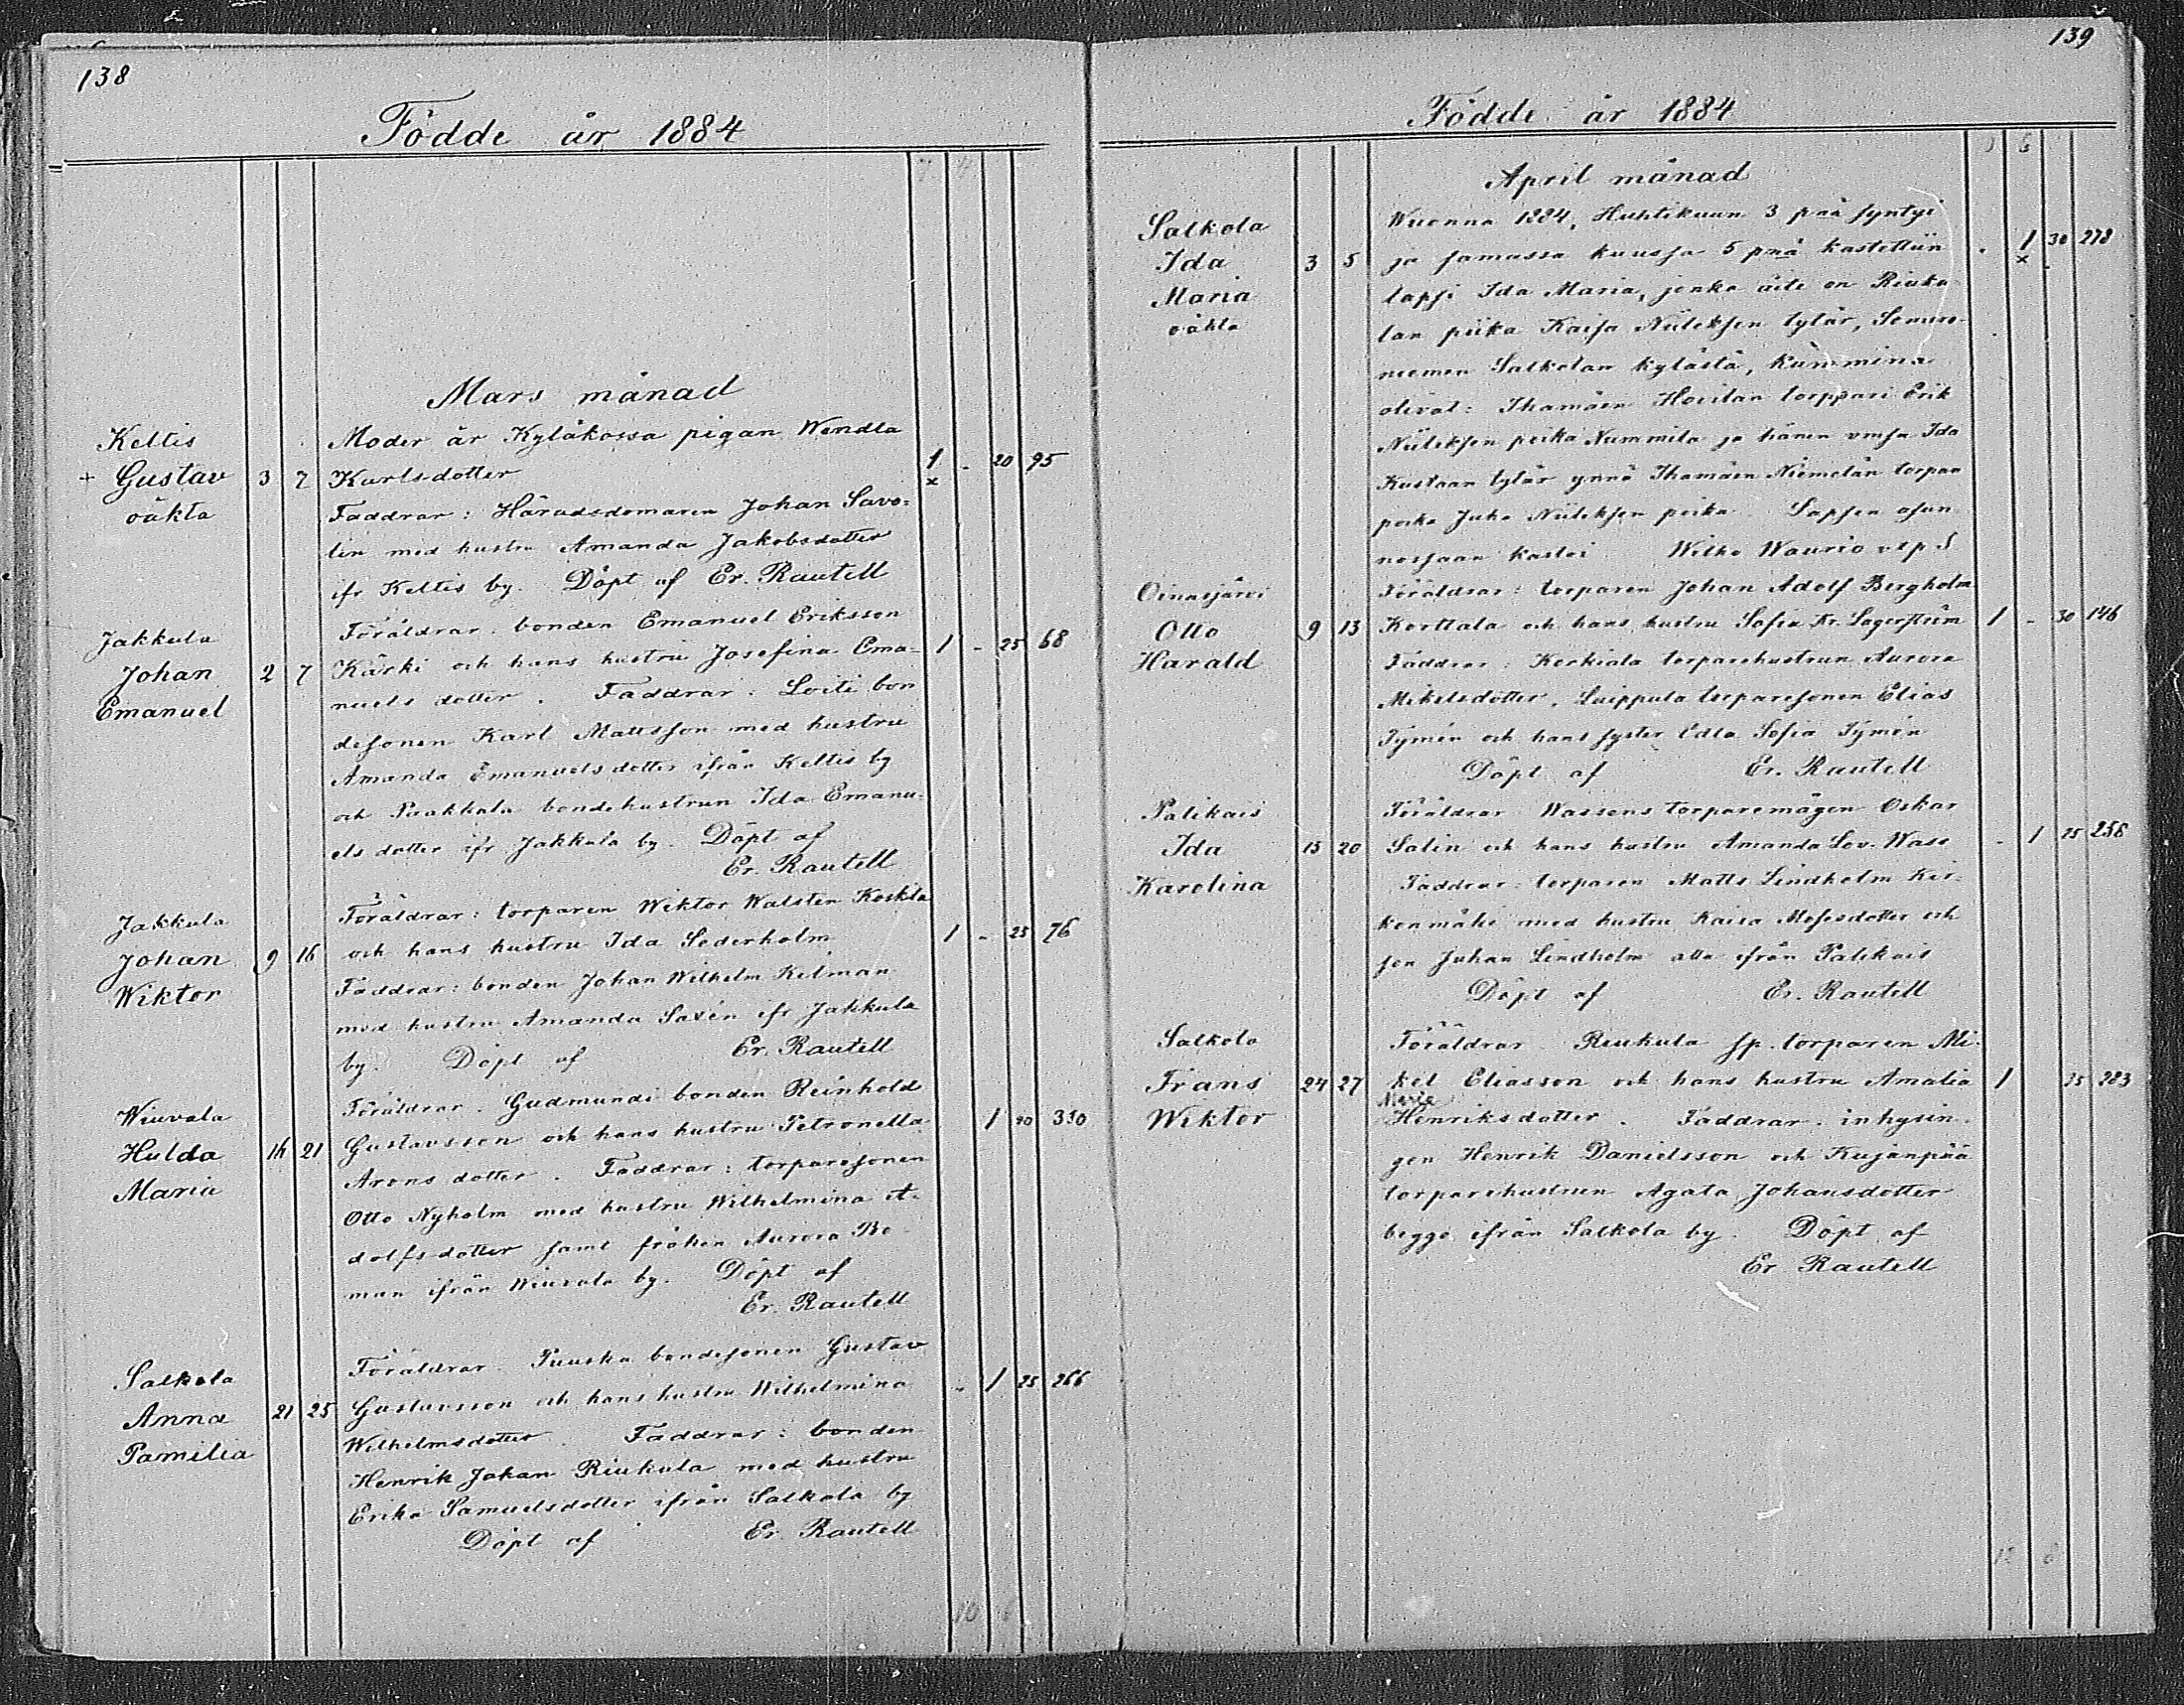 138
Födde år 1884
Mars månad
Keltis Moder är Kyläkossa pigan Wendla
+ Gustav 3 7 Karlsdotter 1 - 20 95
oäkta x
Faddrar: Häradsdomaren Johan Savo-
lin med hustru Amanda Jakobsdotter
ifr Keltis by. Döpt af Er. Rautell
Jakkula Föräldrar: bonden Emanuel Eriksson
Johan 2 7 Kärki och hans hustru Josefina Ema- 1 - 25 68
Emanuel nuels dotter. Faddrar: Loiti bon
desonen Karl Mattsson med hustru
Amanda Emanuels dotter ifrån Keltis by
och Paakkala bondehustrun Ida Emanu-
els dotter ifr Jakkula by. Döpt af
Er. Rautell
Jakkula Föräldrar: torparen Wiktor Walsten Koskela
Johan 9 16 och hans hustru Ida Sederholm 1 - 25 76
Wiktor Faddrar: bonden Johan Wilhelm Kilman
med hustru Amanda Savén ifr Jakkula
by. Döpt af Er. Rautell
Wiuvala Föräldrar. Gudmundi bonden Reinhold
Hulda 16 21 Gustavsson och hans hustru Petronella 1 330
Maria Arons dotter. Faddrar: torparesonen
Otto Nyholm med hustru Wilhelmina A-
dolfs dotter samt fröken Aurora Bo-
man ifrån Wiuvala by. Döpt af
Er. Rautell
Salkola Föräldrar. Puuska bondesonen Gustav
Anna 21 25 Gustavsson och hans hustru Wilhelmina - 1 25 266
Pamilia Wilhelmsdotter. Faddrar: bonden
Henrik Johan Riukula med hustru
Erika Samuelsdotter ifrån Salkola by
Döpt af Er. Rautell
10
139
Födde år 1884
April månad
Salkola Wuonna 1884, Huhtikuun 3 pnä syntyi
Ida 3 5 ja samassa kuussa 5 pnä kastettiin - 1 30 278
Maria lapsi Ida Maria, jonka äiti on Riuku- x
oäkta lan piika Kaisa Niileksen tytär, Somero-
niemen Salkolan kylästä, Kummina
olivat: Ihamäen Hovilan torppari Erik
Niileksen poika Nummila ja hänen vmsa Ida
Kustaan tytär ynnä Ihamäen Niemelän torpan
poika Juha Niileksen poika. Lapsen
kastoi Wilho Waurio
Oinasjärvi Föräldrar: torparen Johan Adolf Bergholm
Otto 9 13 Korttala och hans hustru Sofia Fr. Lagerström 1 - 30 146
Harald Faddrar: Kerkiala torparehustrun Aurora
Mikelsdotter, Luippula torparesonen Elias
Tymén och hans syster Edla Sofia Tymén
Döpt af Er. Rautell
Palikais Föräldrar Wassens torparemågen Oskar
Ida 15 20 Salin och hans hustru Amanda Lov. Wass - 1 25 258
Karolina Faddrar: torparen Matts Lindholm Kir-
konmäki med hustru Kaisa Mosesdotter och
son Juhan Lindholm alla ifrån Palikais
Döpt af Er. Rautell
Salkola Föräldrar. Riukula sp. torparen Mi-
Frans 24 27 kel Eliasson och hans hustru Amalia 1 25 283
Maria
Wiktor Henriksdotter. Faddrar. inhysin-
gen Henrik Danielsson och Kujanpää
torparehustrun Agata Johansdotter
begge ifrån Salkola by. Döpt af
Er Rautell
12 6